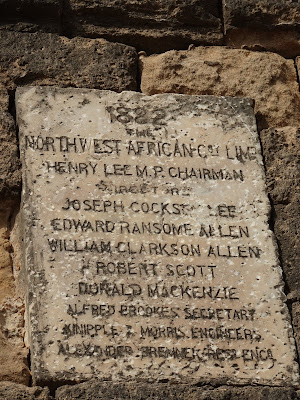 1882
THE
NORTH WEST AFRICAN Co. LIM.
HENRY LEE M.P. CHAIRMAN
JOSEPH COCKSEY LEE
EDWARD RANSOME ALLEN
WILLIAM CLARKSON ALLEN
ROBERT SCOTT
DONALD MACKENZIE
ALFRED BROOKES SECRETARY
KINIPPLE & MORRIS ENGINEERS
ALEXANDER BREMNER